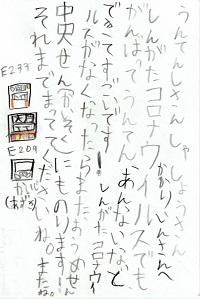 うんてんしさん しゃしょうさん
かかりいんさんへ
しんがたコロナウイルスでも
がんばってうんてん、あんないなど
できてすごいです！しんがたコロナウイ
ルスがなくなったらまた、おうめせん
中央せんかいそくにものります!!
それまでまっててくださいね。またね。
E233
E209
(あずさ)